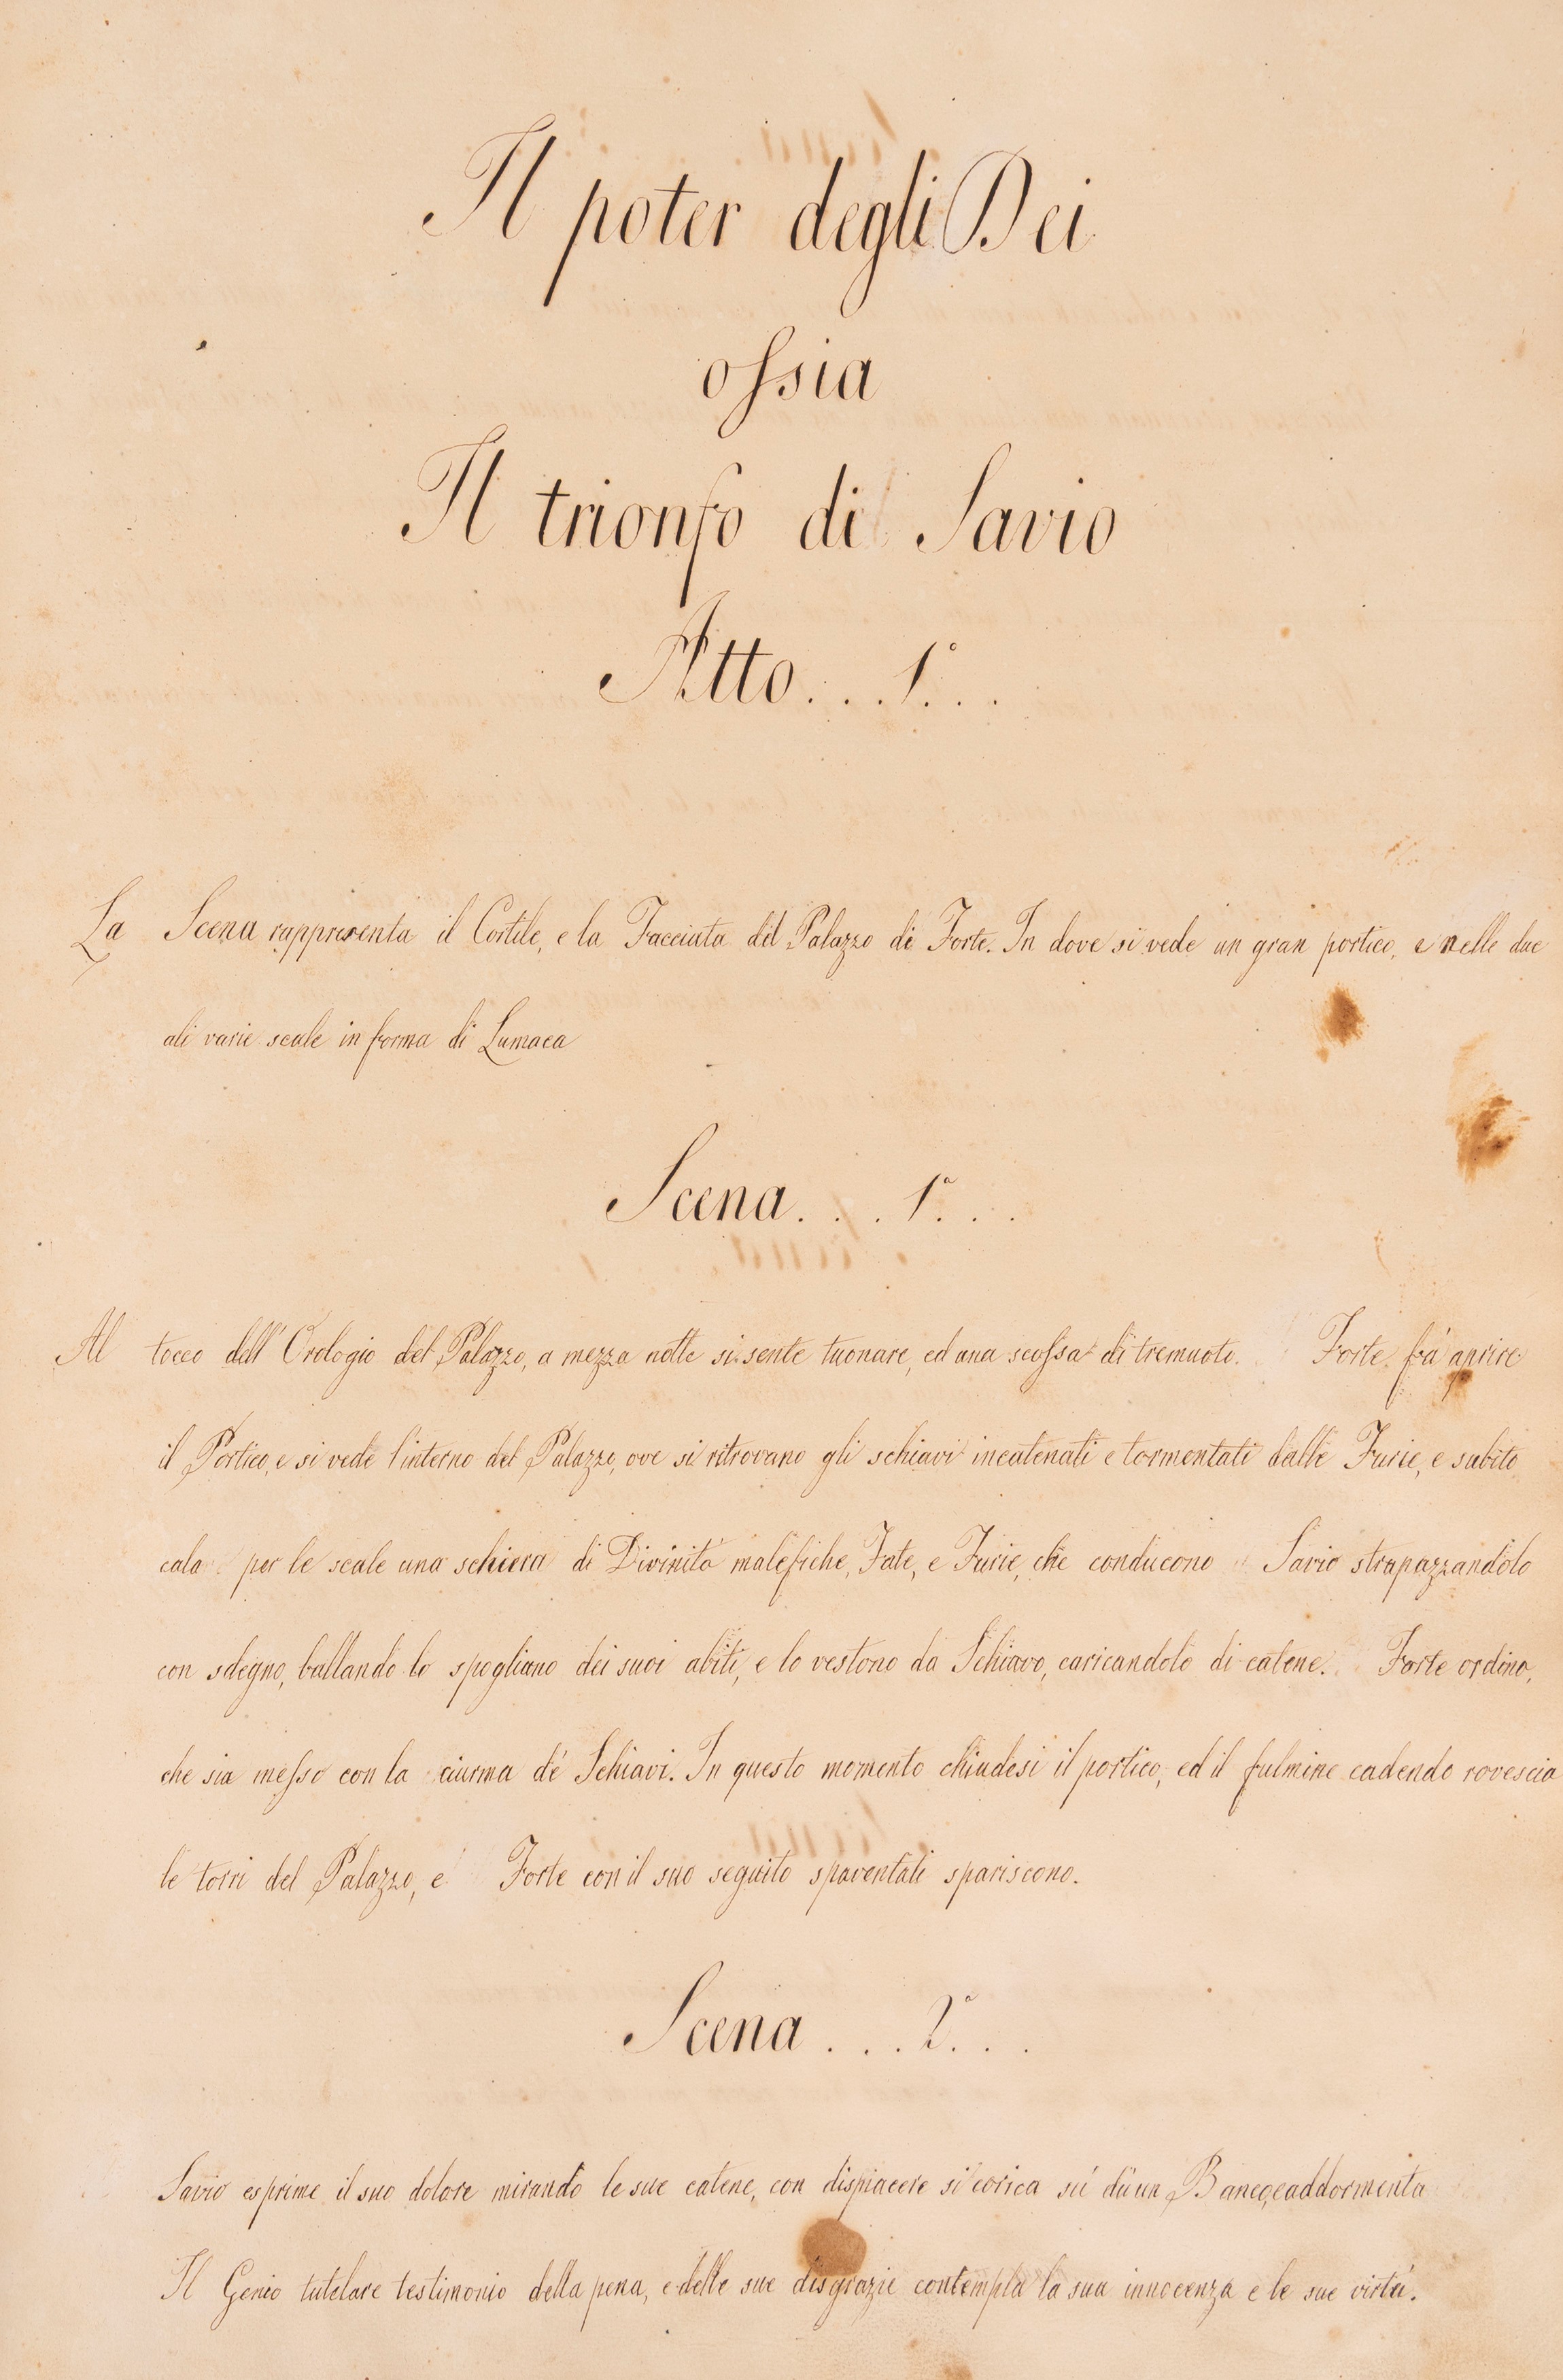 Il poter degli Dei
ossia
Il trionfo di Savio
Atto. . . 1.° . .
La Scena rappresenta il Cortile, e la Facciata del Palazzo di Forte. In dove si vede un gran portico, e nelle due
ali varie scale in forma di Lumaca
Scena. . . 1.ª . .
Al tocco dell' Orologio del Palazzo, a mezza notte si sente tuonare, ed una scossa di tremuoto. Forte fà aprire
il Portico, e si vede l'interno del Palazzo, ove si ritrovano gli schiavi incatenati e tormentati dalle Furie, e subito
cala per le scale una schiera di Divinità malefiche, Fate, e Furie, che conducono Savio strapazzandolo
con sdegno, ballando lo spogliano dei suoi abiti, e lo vestono da Schiavo, caricandolo di catene. Forte ordina,
che sia messo con la ciurma de' Schiavi. In questo momento chiudesi il portico, ed il fulmine cadendo rovescia
le torri del Palazzo, e Forte con il suo seguito spaventati spariscono.
Scena . . . 2.ª . .
Savio esprime il suo dolore mirando le sue catene, con dispiacere si corica sù di un Banco, e addormenta
Il Genio tutelare testimonio della pena, e delle sue disgrazie contempla la sua innocenza e le sue virtù.